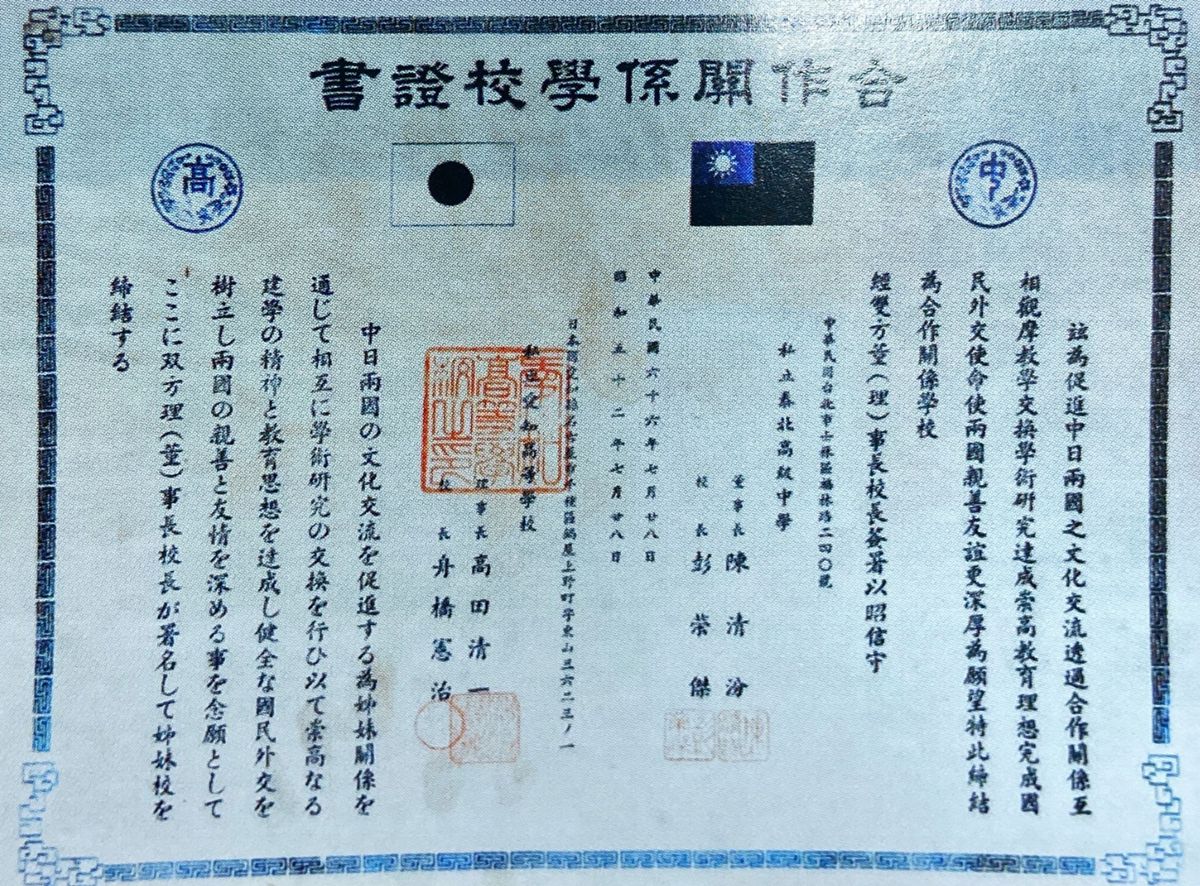 合作關係學校證書
中
高
玆為促進中日兩國之文化交流透過合作關係互
相觀摩教學交換學術研究達成崇高教育理想完成國
民外交使命使兩國親善友誼更深厚為願望特此締結
為合作關係學校
經雙方董(理)事長校長簽署以昭信守
中華民國台北市士林區福林路二四〇號
私立泰北高級中學
董事長 陳清汾
校長 彭榮傑
中華民國六十六年七月廿八日
昭和五十二年七月廿八日
日本國愛知縣名古屋市千種區鍋屋上野町字東山三六二三ノ一
私立愛知高等學校
理事長 高田清一
校長 舟橋憲治
中日兩國の文化交流を促進する為姊妹關係を
通じて相互に學術研究の交換を行ひ以て崇高なる
建學の精神と教育思想を達成し健全な國民外交を
樹立し兩國の親善と友情を深める事を念願として
ここに双方理(董)事長校長が署名して姊妹校を
締結する